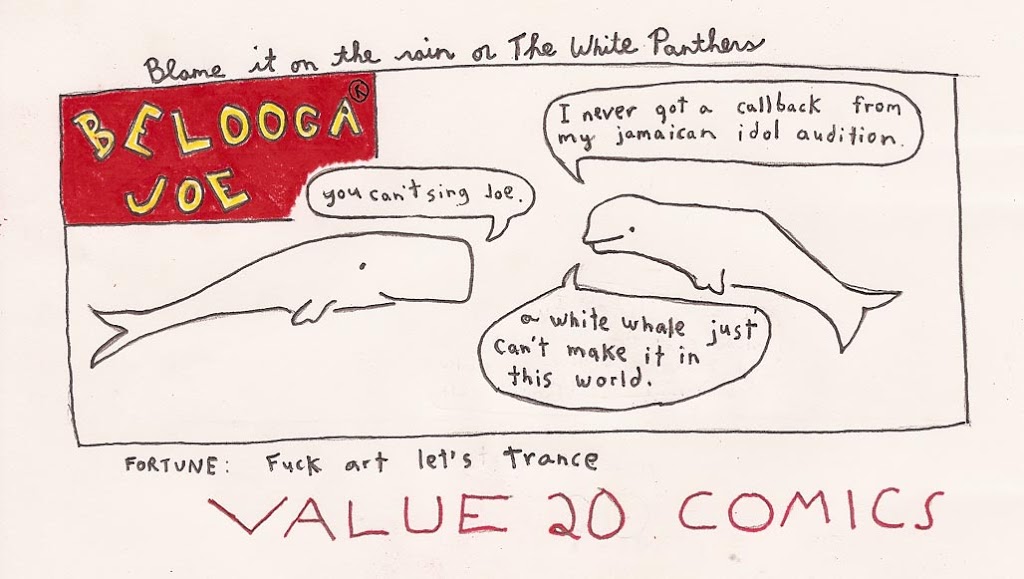 Blame it on the rain or The White Panthers
BELOOGA
JOE
®
I never got a callback from
my jamaican idol audition.
you can't sing Joe.
a white whale just
can't make it in
this world.
FORTUNE: Fuck art let's trance
VALUE 20 COMICS